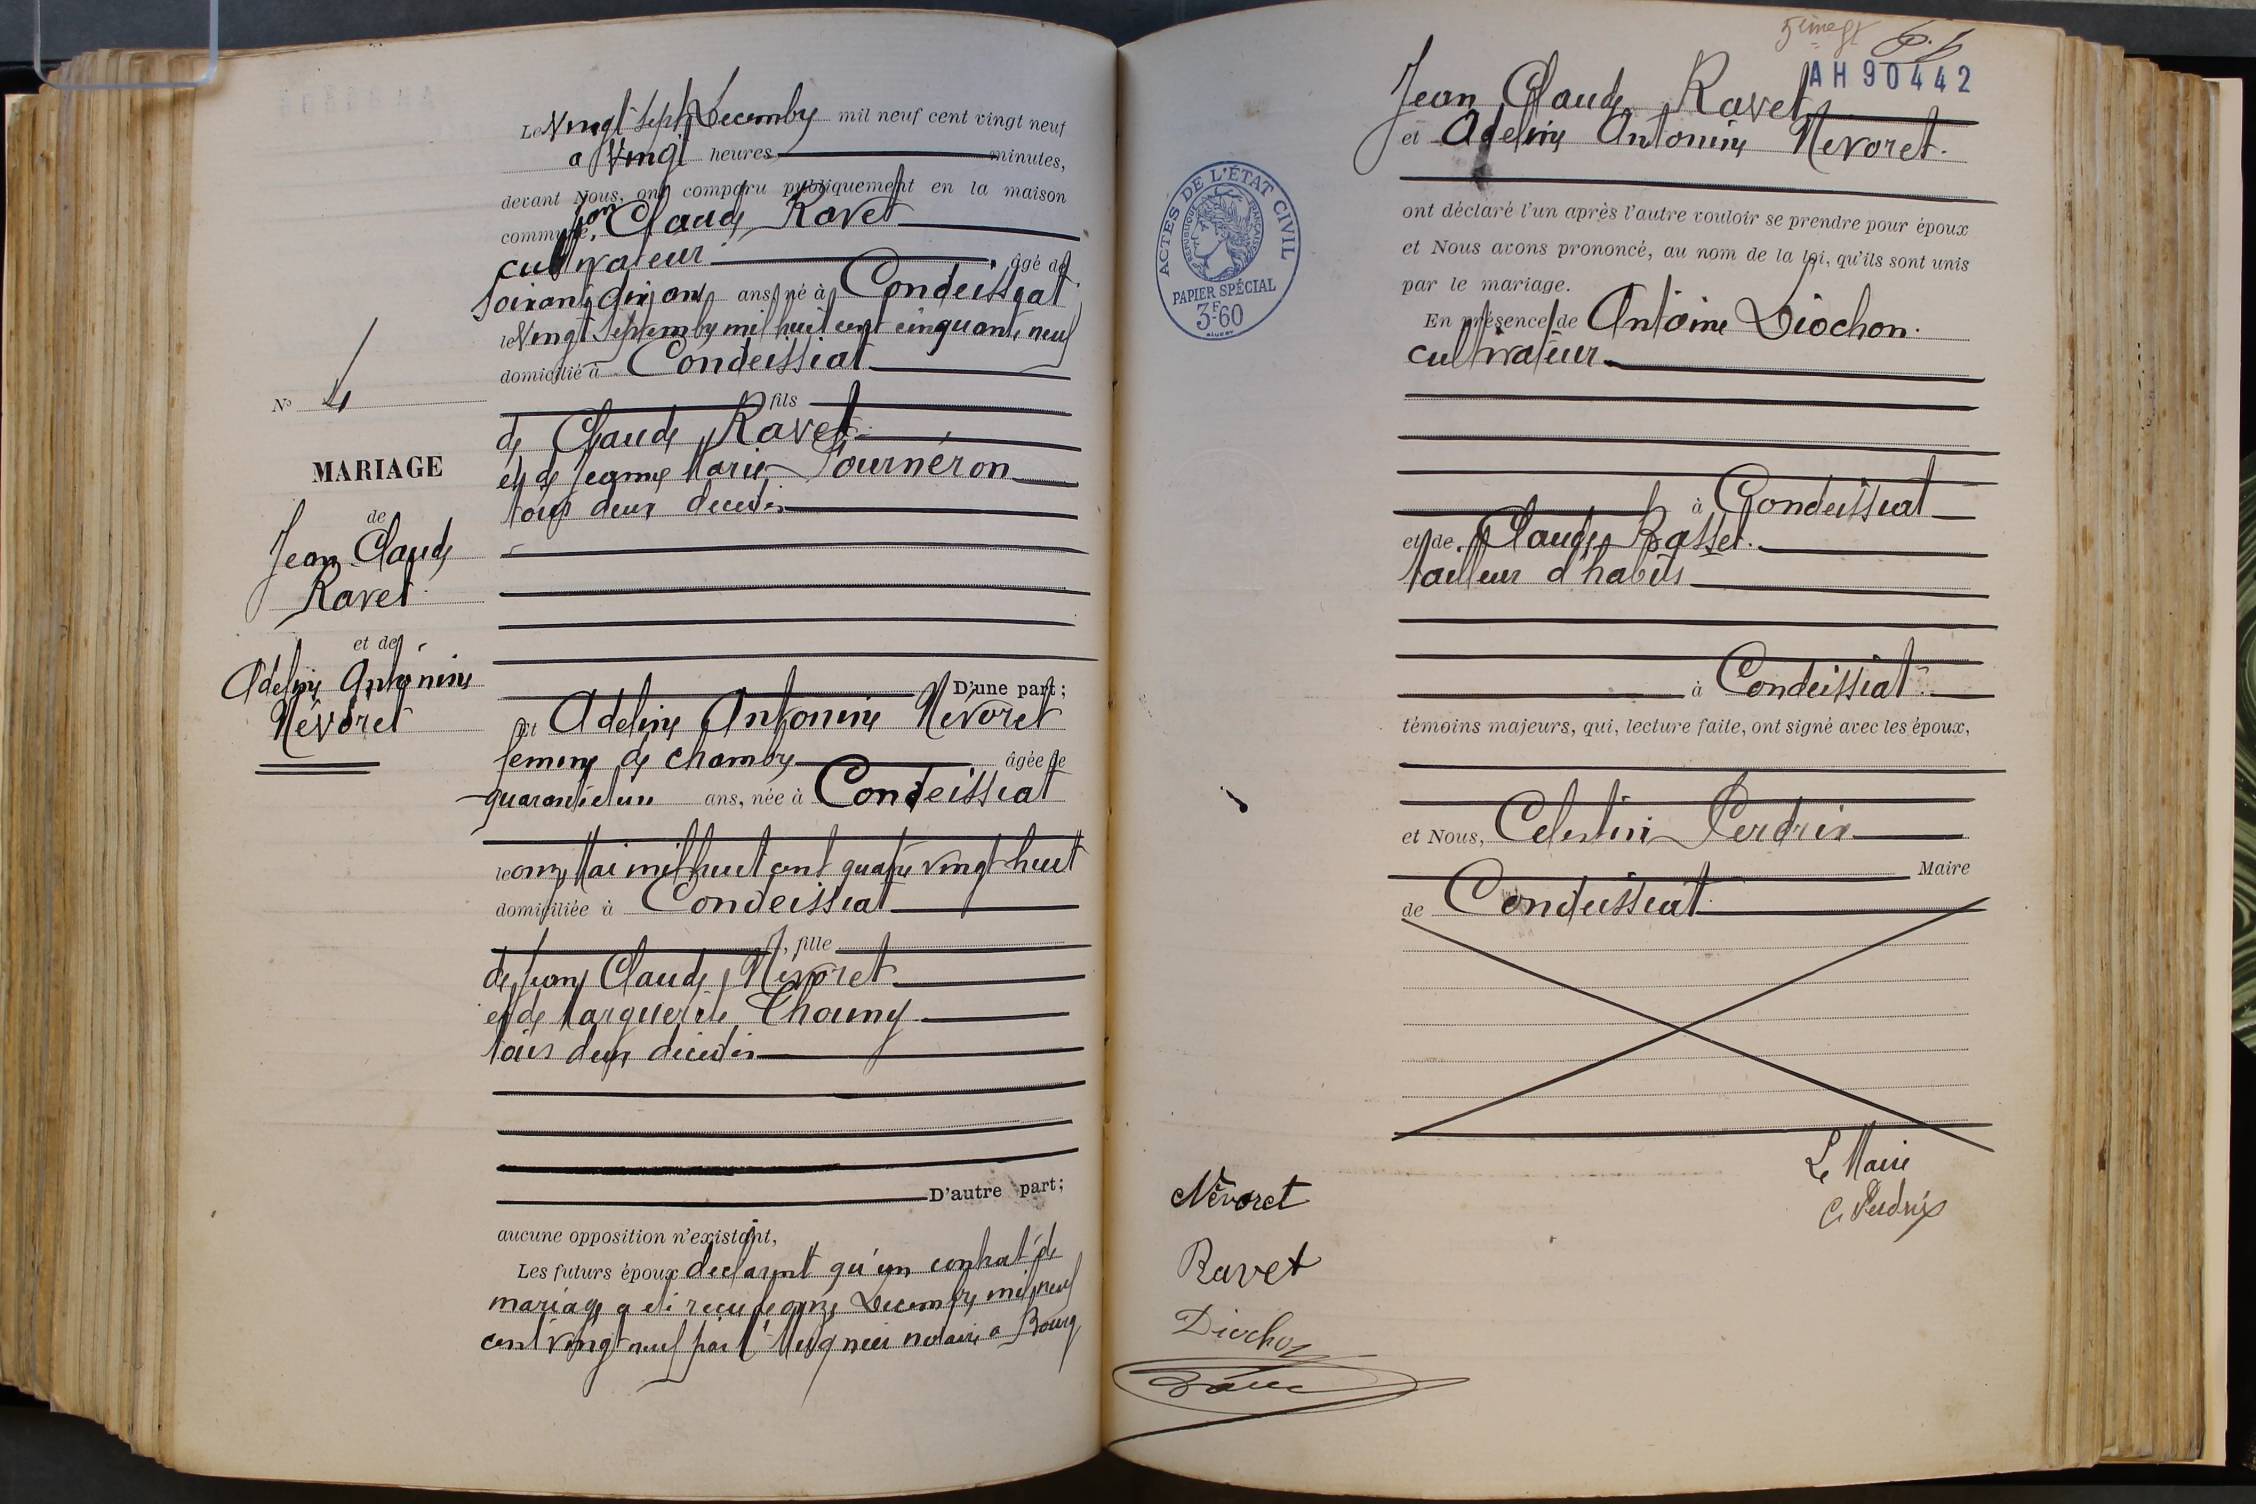 Le Vingt Sept Decembre mil neuf cent vingt neuf
a Vingt heures minutes,
devant Nous, ont comparu publiquement en la maison
commune, Jean Claude Ravet
cultivateur âgé de
Soixante dix ans ans, né à Condeissiat
le Vingt Septembre mil huit cent cinquante neuf
domicilié à Condeissiat
fils
de Claude Ravet
et de Jeanne Marie Fournéron
tous deux decedés
D'une part;
et Adeline Antonine Nevoret
femme de chambre âgée de
quarante et un ans, née à Condeissiat
le onze Mai mil huit cent quatre vingt huit
domiciliée à Condeissiat
fille
de Jean Claude Névoret
et de Marguerite Chouny
tous deux decedés
D'autre part;
aucune opposition n'existant,
Les futurs époux declarent qu'un contrat de
mariage a été reçu le onze Decembre mil neuf
cent vingt neuf par notaire a Bourg
No 4
MARIAGE
de
Jean Claude
Ravet
et de
Adeline Antonine
Névoret
AH 90442
Jean Claude Ravet
et Adeline Antonine Nevoret.
ont déclaré l'un après l'autre vouloir se prendre pour époux
et Nous avons prononcé, au nom de la loi, qu'ils sont unis
par le mariage.
En présence de Antoine Diochon.
cultivateur
à Condeissiat
et de Claude Rasset.
tailleur d'habits
à Condeissiat
témoins majeurs, qui, lecture faite, ont signé avec les époux,
et Nous, Celestin Perdrix
Maire
de Condeissiat
Le Maire
C. Perdrix
Névoret
Ravet
Diochon
ACTES DE L'ÉTAT CIVIL
RÉPUBLIQUE FRANÇAISE
PAPIER SPÉCIAL
3F60